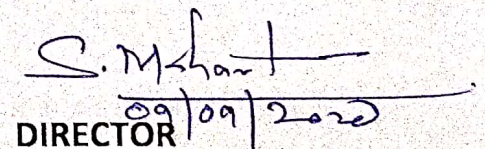 S. Mohant
09/09/2020
DIRECTOR